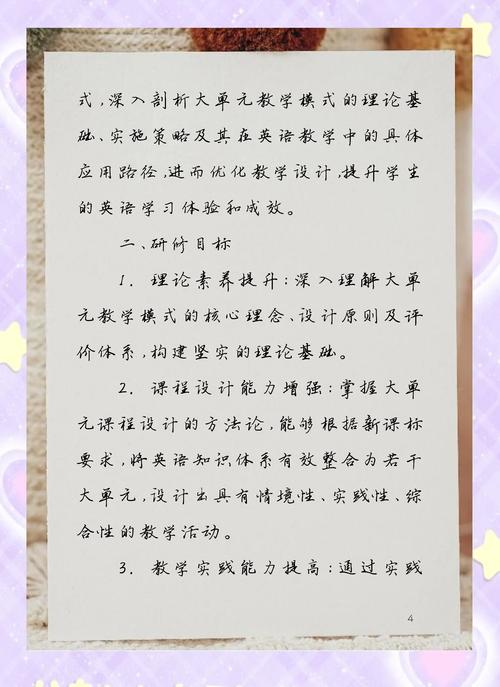 式,深入剖析大单元教学模式的理论基
础、实施策略及其在英语教学中的具体
应用路径,进而优化教学设计,提升学生
的英语学习体验和成效。
二、研修目标
1. 理论素养提升:深入理解大单
元教学模式的核心理念、设计原则及评
价体系,构建坚实的理论基础。
2. 课程设计能力增强:掌握大单
元课程设计的方法论,能够根据新课标
要求,将英语知识体系有效整合为若干
大单元,设计出具有情境性、实践性、综
合性的教学活动。
3. 教学实践能力提高:通过实践
4